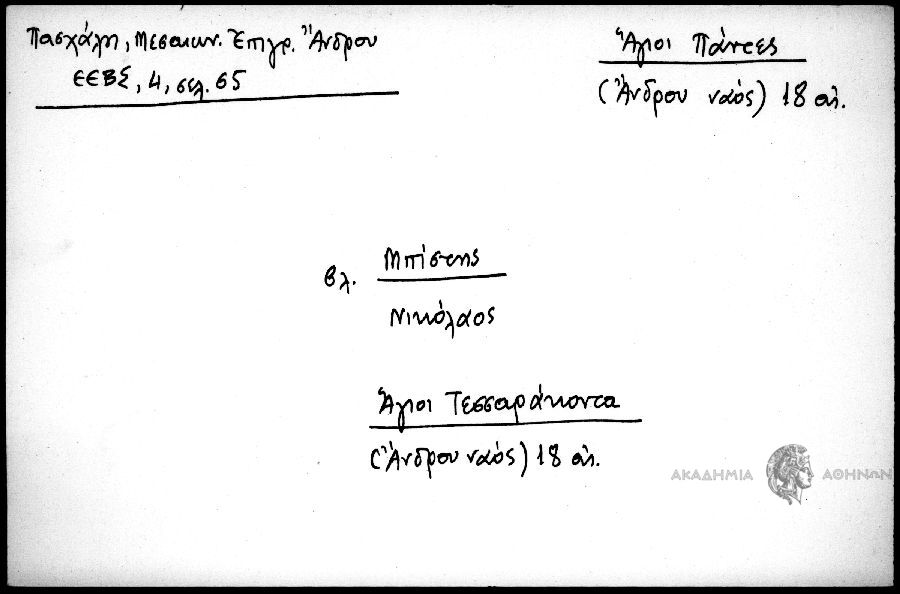 Πασχάλη, Μεσαιων. Ἐπιγρ. Ἄνδρου
ΕΕΒΣ, 4, σελ. 65
Ἅγιοι Πάντες
(Ἄνδρου ναός) 18 αἰ.
βλ. Μπίστης
Νικόλαος
Ἅγιοι Τεσσαράκοντα
(Ἄνδρου ναός) 18 αἰ.
ΑΚΑΔΗΜΙΑ ΑΘΗΝΩΝ